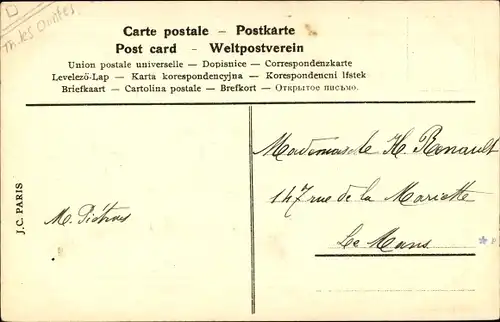 Th. les Contes
Carte postale – Postkarte
Post card – Weltpostverein
Union postale universelle – Dopisnice – Correspondenzkarte
Levelező-Lap – Karta korespondencyjna – Korespondencni lfstek
Briefkaart – Cartolina postale – Brefkort – Открытое письмо.
J. C. PARIS
M. Piétrus
Mademoiselle H. Renault
147 rue de la Mariette
Le Mans